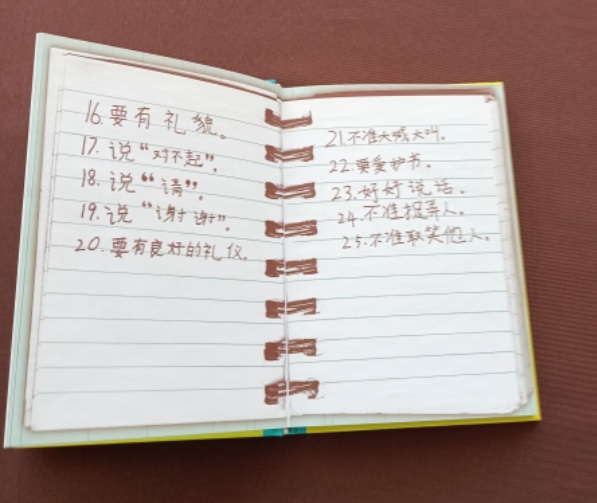 16.要有礼貌。
17.说“对不起”。
18.说“请”。
19.说“谢谢”。
20.要有良好的礼仪。
21.不准大喊大叫。
22.要爱护书。
23.好好说话。
24.不准捉弄人。
25.不准取笑他人。